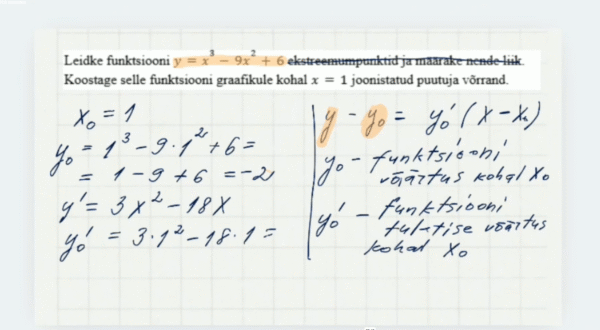 Leidke funktsiooni y = x³ − 9x² + 6 ekstreemumpunktid ja määrake nende liik.
Koostage selle funktsiooni graafikule kohal x = 1 joonistatud puutuja võrrand.
x₀ = 1
y₀ = 1³ − 9·1² + 6 =
= 1 − 9 + 6 = −2
y′ = 3x² − 18x
y₀′ = 3·1² − 18·1 =
y − y₀ = y₀′ (x − x₀)
y₀ − funktsiooni
väärtus kohal x₀
y₀′ − funktsiooni
tuletise väärtus
kohal x₀